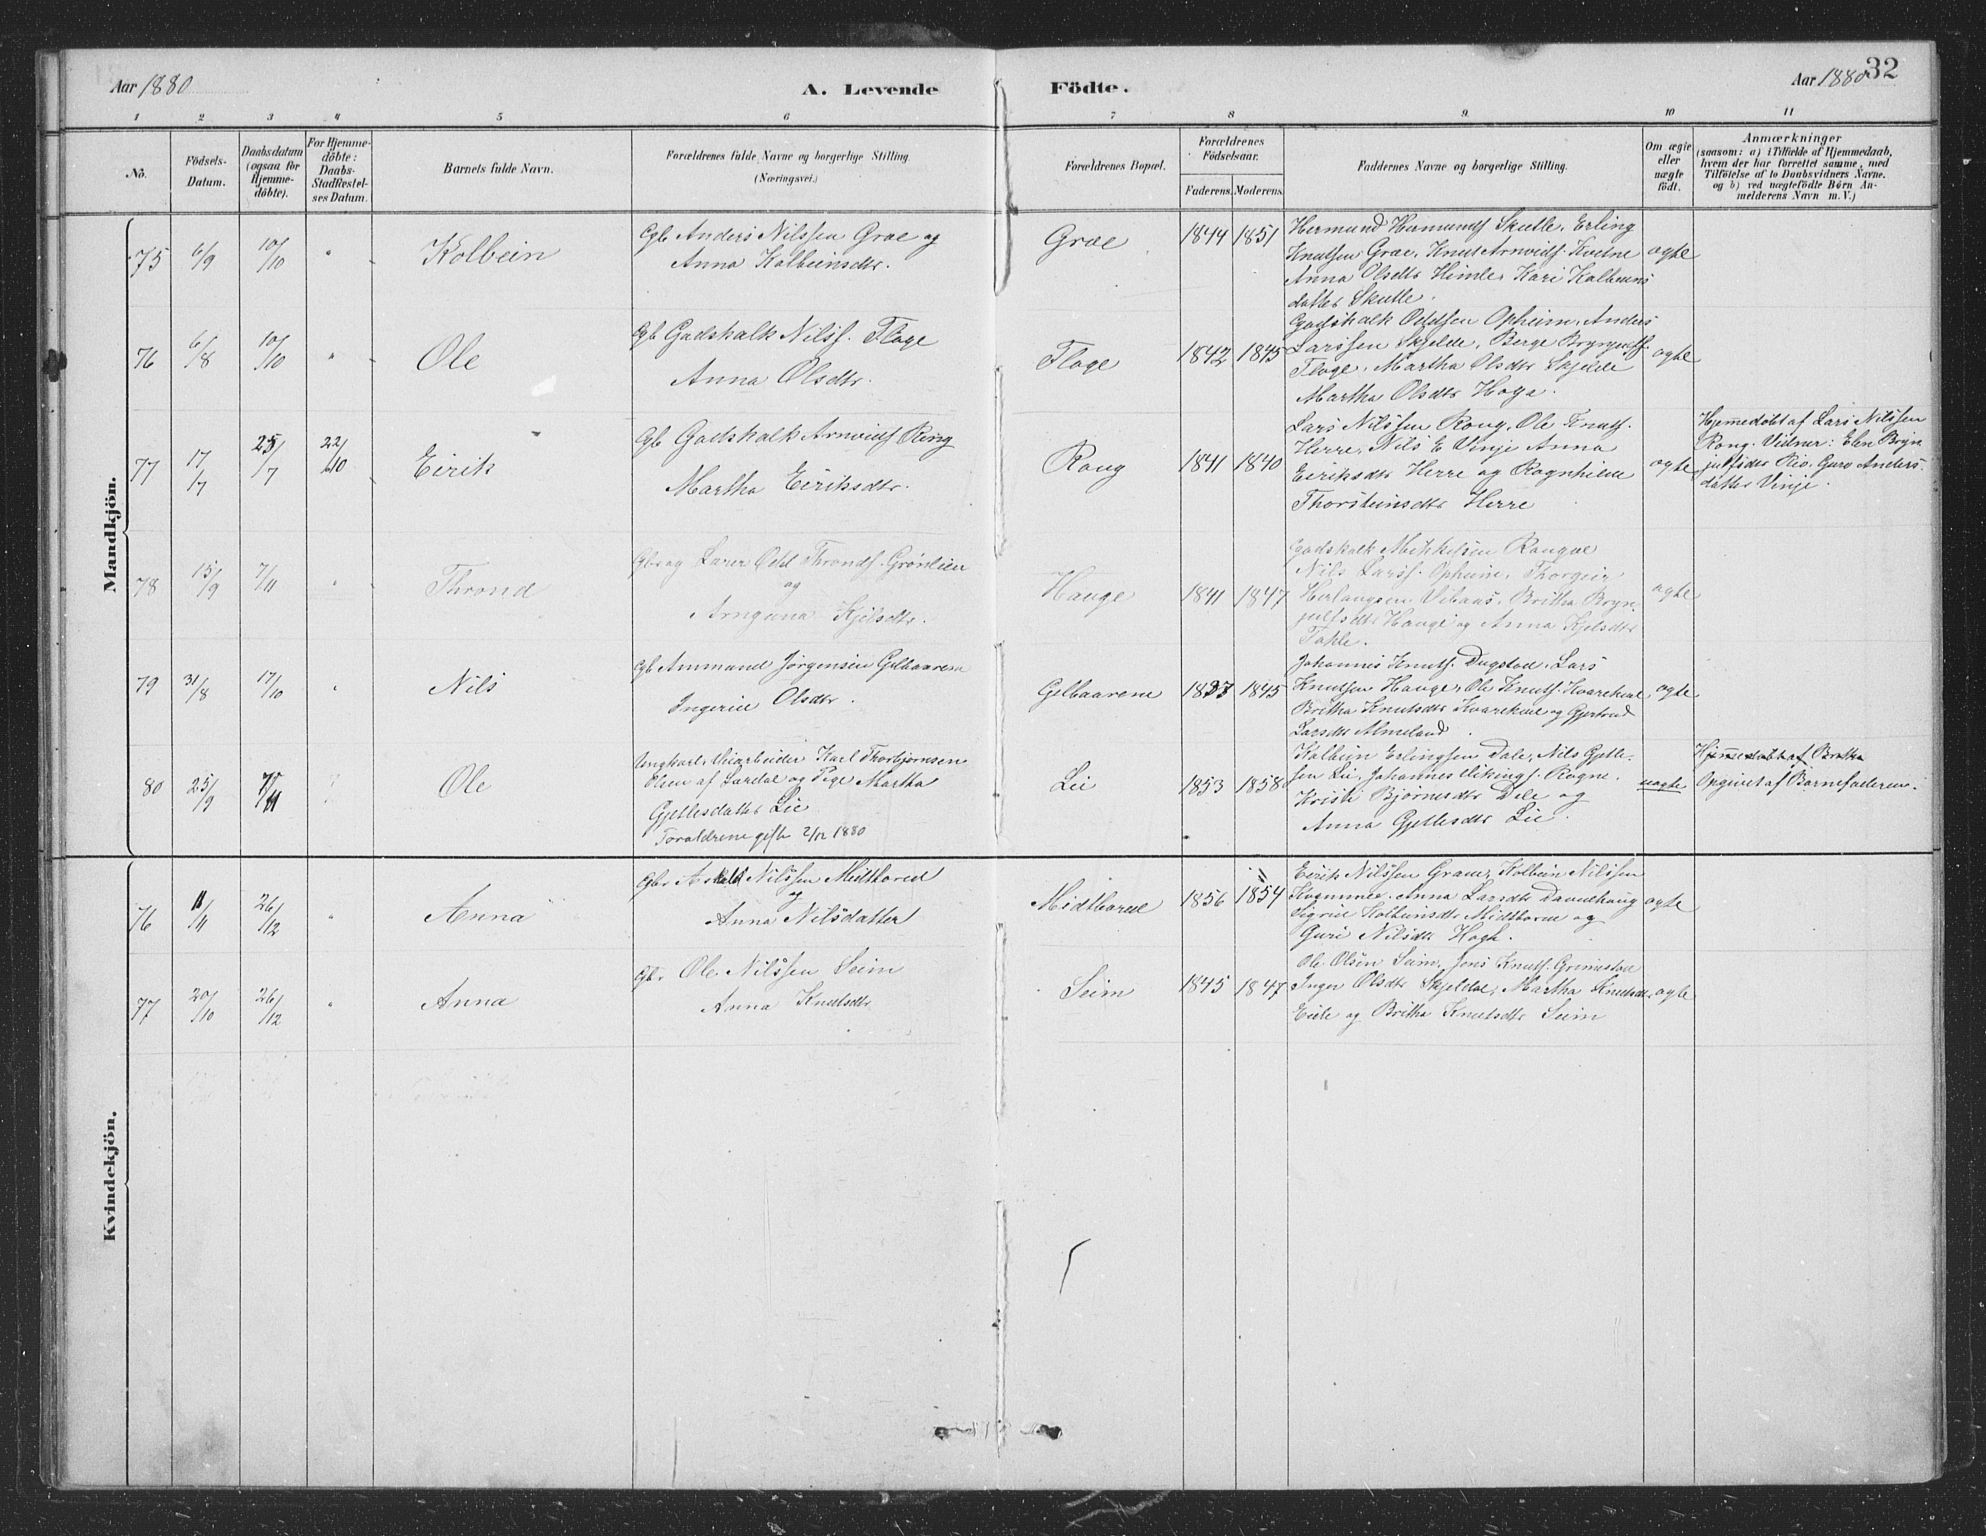 Aar 1880
A. Levende
Födte.
Aar 1880
32
1 2 3 4 5 6 7 8 9 10 11
No.
Födsels-
Datum.
Daabsdatum
(ogsaa for
Hjemme-
döbte).
For Hjemme-
döbte:
Daabs-
Stadfæstel-
ses Datum.
Barnets fulde Navn.
Forældrenes fulde Navne og borgerlige Stilling.
(Næringsvei.)
Forældrenes Bopæl.
Forældrenes
Födselsaar.
Faderens. Moderens.
Faddernes Navne og borgerlige Stilling.
Om ægte
eller
uægte
födt.
Anmærkninger
(saasom: a) i Tilfælde af Hjemmedaab,
hvem der har forrettet samme, med
Tilföielse af to Daabsvidners Navne.
og b) ved uægtefödte Börn An-
melderens Navn m. V.)
Mandkjön.
75 6/9 10/10 " Kolbein
Gbr Anders Nilssen Grae og
Anna Kolbeinsdtr.
Grae 1844 1851
Hermund Skutle, Erling
Knutsen Grae, Knut Arnvidsf. Kvitne
Anna Olsdtr Himle, Kari Kolbeins
datter Skutle.
ægte
76 6/8 10/10 " Ole
Gbr Godskalk Nilsf. Flage
Anna Olsdtr.
Flage 1842 1845
Godskalk Oddsen Opheim, Anders
Larssen Skjelde, Berge Brynjulfsf.
Flage, Martha Olsdtr Skjelde
Martha Olsdtr Haga.
ægte
77 17/7 25/7 22/10 Eirik
Gbr Godskalk Arnvidsf Ring
Martha Eiriksdtr.
Rong 1841 1840
Lars Nilssen Rong, Ole Knutsf.
Herre, Nils E Vinje Anna
Eiriksdtr Herre og Ragnhilde
Thorsteinsdtr Herre
ægte
Hjemmedøbt af Lars Nilssen
Rong. Vidner: Elen Bryn
julfsdtr Rio, Guro Anders-
datter Vinje.
78 15/9 7/11 " Thrond
Gbr og Lærer Odd Throndsf. Grønlien
og
Arnguna Kjelsdtr.
Hauge 1841 1847
Godskalk Mikkelsen
Nils Larsf. Opheim, Thorgeir
Herlaugsen, Britha Bryn
julfsdtr Hauge og Anna Kjelsdtr
ægte
79 31/8 17/10 " Nils
Gbr Ammund Jørgensen Gjelbaarene
Ingerid Olsdtr.
Gjelbaarene 1837 1845
Johannes Knutsf. Dugstad, Lars
Knutsen Hauge, Ole Knutsf. Kvarekval
Britha Knutsdtr Kvarekval og Gjertrud
Larsdtr Almeland.
ægte
80 25/9 7/11 Ole
Ungkarl, Veiarbeider Karl Thorbjørnsen
Olsen af Lærdal og Pige Martha
Gjellesdatter Lie
Forældrene gifte 2/12 1880
Lie 1853 1858
Kolbein Erlingsen Dale, Nils Gjelle-
sen Lie, Johannes Vikingsf. Rogne.
Kristi Bjørnesdtr Dale og
Anna Gjellesdtr Lie.
uægte
Hjemmedøbt af Britha
Opgivet af Barnefaderen.
Kvindekjön.
76 11/11 26/12 " Anna
Gbr Nilssen Midtbøred
og
Anna Nilsdatter
Midtbøred 1856 1854
Eirik Nilssen Graue, Kolbein Nilssen
Anna Larsdtr Davidhaug
Sigrid Kolbeinsdtr Midtbøred og
Guri Nilsdtr Hagh.
ægte
77 20/10 26/12 " Anna
Gbr Ole Nilssen Seim
Anna Knutsdtr
Seim 1845 1847
Ole Olsen Seim, Jens Knutsf. Grimestad
Inger Olsdtr Skjeldal, Martha Knutsdtr
Eide og Britha Knutsdtr Seim
ægte